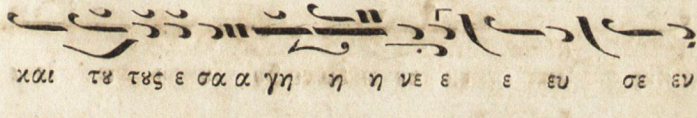 και τȣ τȣς ε σα α γη η η νε ε ε ευ σε εν